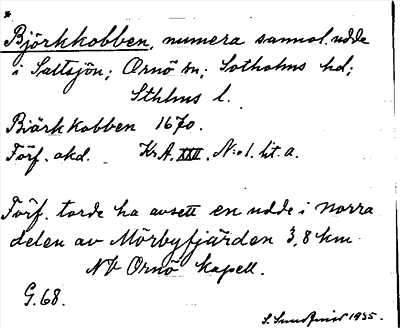 *
Björkkobben, numera sannol. udde
i Saltsjön; Ornö sn; Sotholms hd;
Sthlms l.
Biärkkobben 1670.
Förf. akd. Kr.A. XXII. N:o 1. lit. a.
Förf. torde ha avsett en udde i norra
delen av Mörbyfjärden 3,8 km
NV Ornö kapell.
G. 68.
S. Sundqvist 1935.